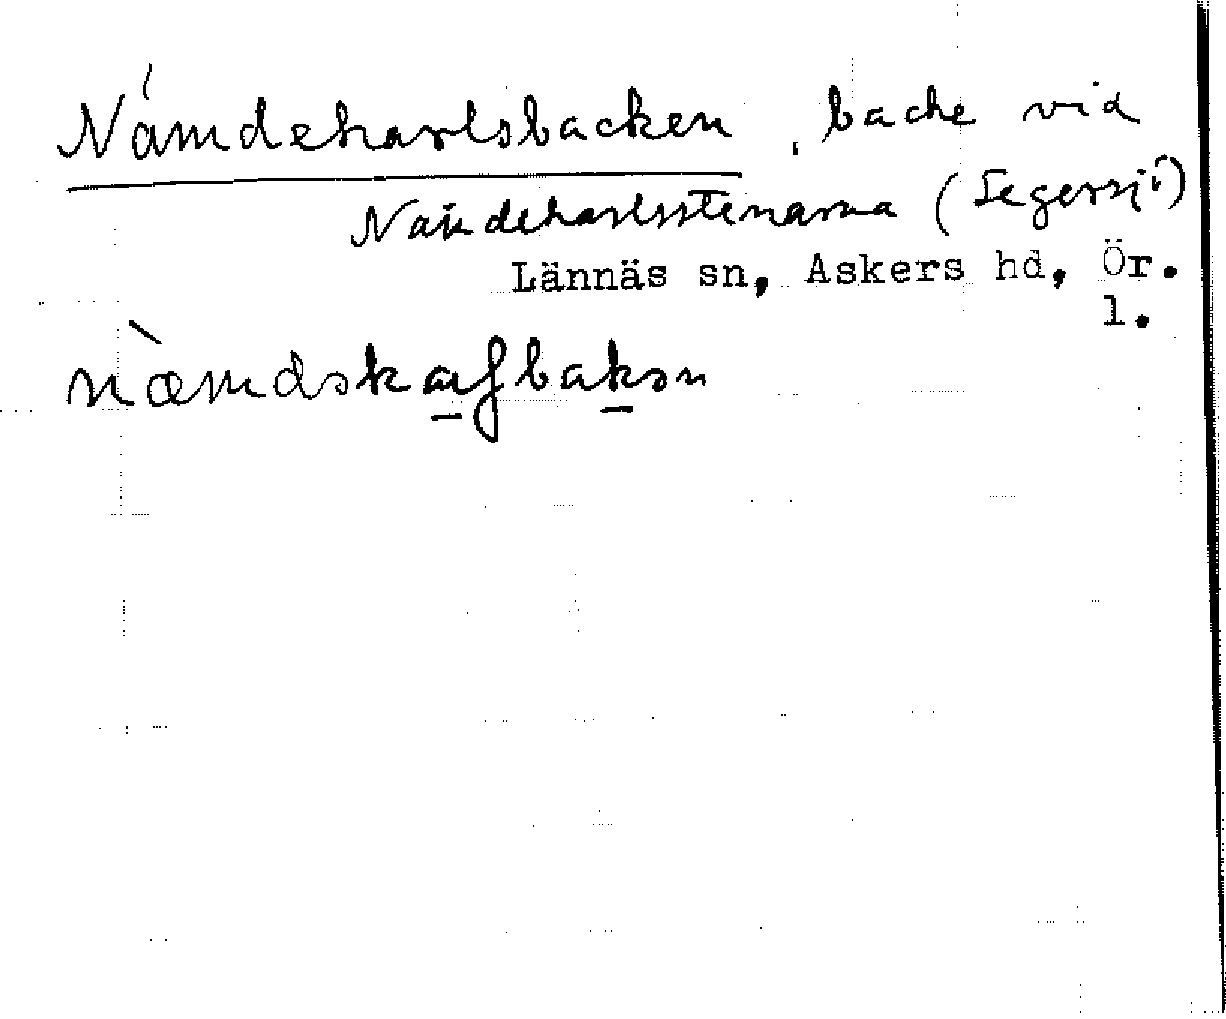 Nämdekarlsbacken, backe vid
Nämdekarlsstenarna (Segersjö)
Lännäs sn, Askers hd, Ör.
l.